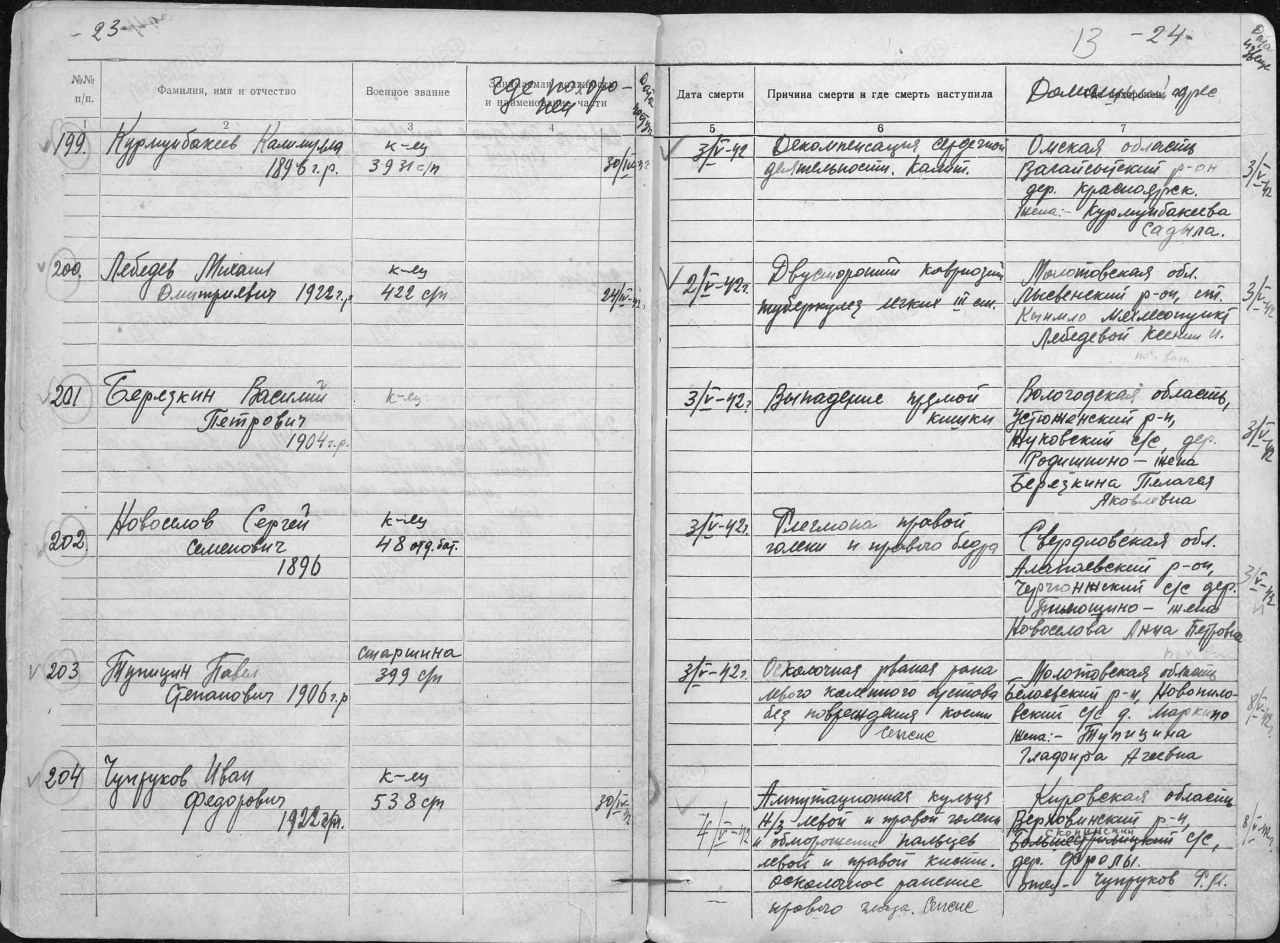 - 23 -
13 - 24 -
№№ п/п.
Фамилия, имя и отчество
Военное звание
Занимаемая должность и наименование части
Где похоронен
Дата поступ.
Дата смерти
Причина смерти и где смерть наступила
Домашний адрес
Дата извещ
1 2 3 4 5 6 7
199. Курмунбакеев Калимулла
1896 г.р.
к-ец
3931 с/п
30/IV-42
3/V-42
Декомпенсация сердечной
деятельности.
Омская область
Вагайский р-он
дер. Красноярск.
Жена:- Курмунбакеева
Садыла.
3/V-42
200. Лебедев Михаил
Дмитриевич 1922 г.р.
к-ец
422 с/п
24/IV-42г.
2/V-42г.
Двусторонний
туберкулез легких III ст.
Молотовская обл.
Лысвенский р-он, ст.
Кын
Лебедевой Ксении И.
3/V-42
201 Березкин Василий
Петрович
1904 г.р.
к-ец
3/V-42г.
Выпадение прямой
кишки
Вологодская область,
Устюженский р-н,
Жуковский с/с, дер.
Родишкино - жена
Березкина Пелагея
Яковлевна
3/V-42
202. Новоселов Сергей
Семенович
1896
к-ец
48 отд. бат.
3/V-42г.
Флегмона правой
голени и правого бедра
Свердловская обл.
Алапаевский р-он,
с/с дер.
- жена
Новоселова Анна Петровна
3/V-42
203 Тупицин Павел
Степанович 1906 г.р
старшина
399 с/п
3/V-42г.
Осколочная рваная рана
левого коленного сустава
без повреждения кости
Сепсис
Молотовская область
Белоевский р-н,
с/с д. Маркино
Жена:- Тупицина
Гладфира Агеевна
8/V-42г.
204 Чупруков Иван
Федорович
1922 г/р.
к-ец
538 с/п
30/IV-42
4/V-42
Ампутационная культя
н/з левой и правой голени
и обморожение пальцев
левой и правой кисти.
Осколочное ранение
правого глаза. Сепсис
Кировская область
Верховинский р-н,
сколинский
с/с,
дер. Фролы.
отец - Чупруков Ф.И.
8/V-42г.